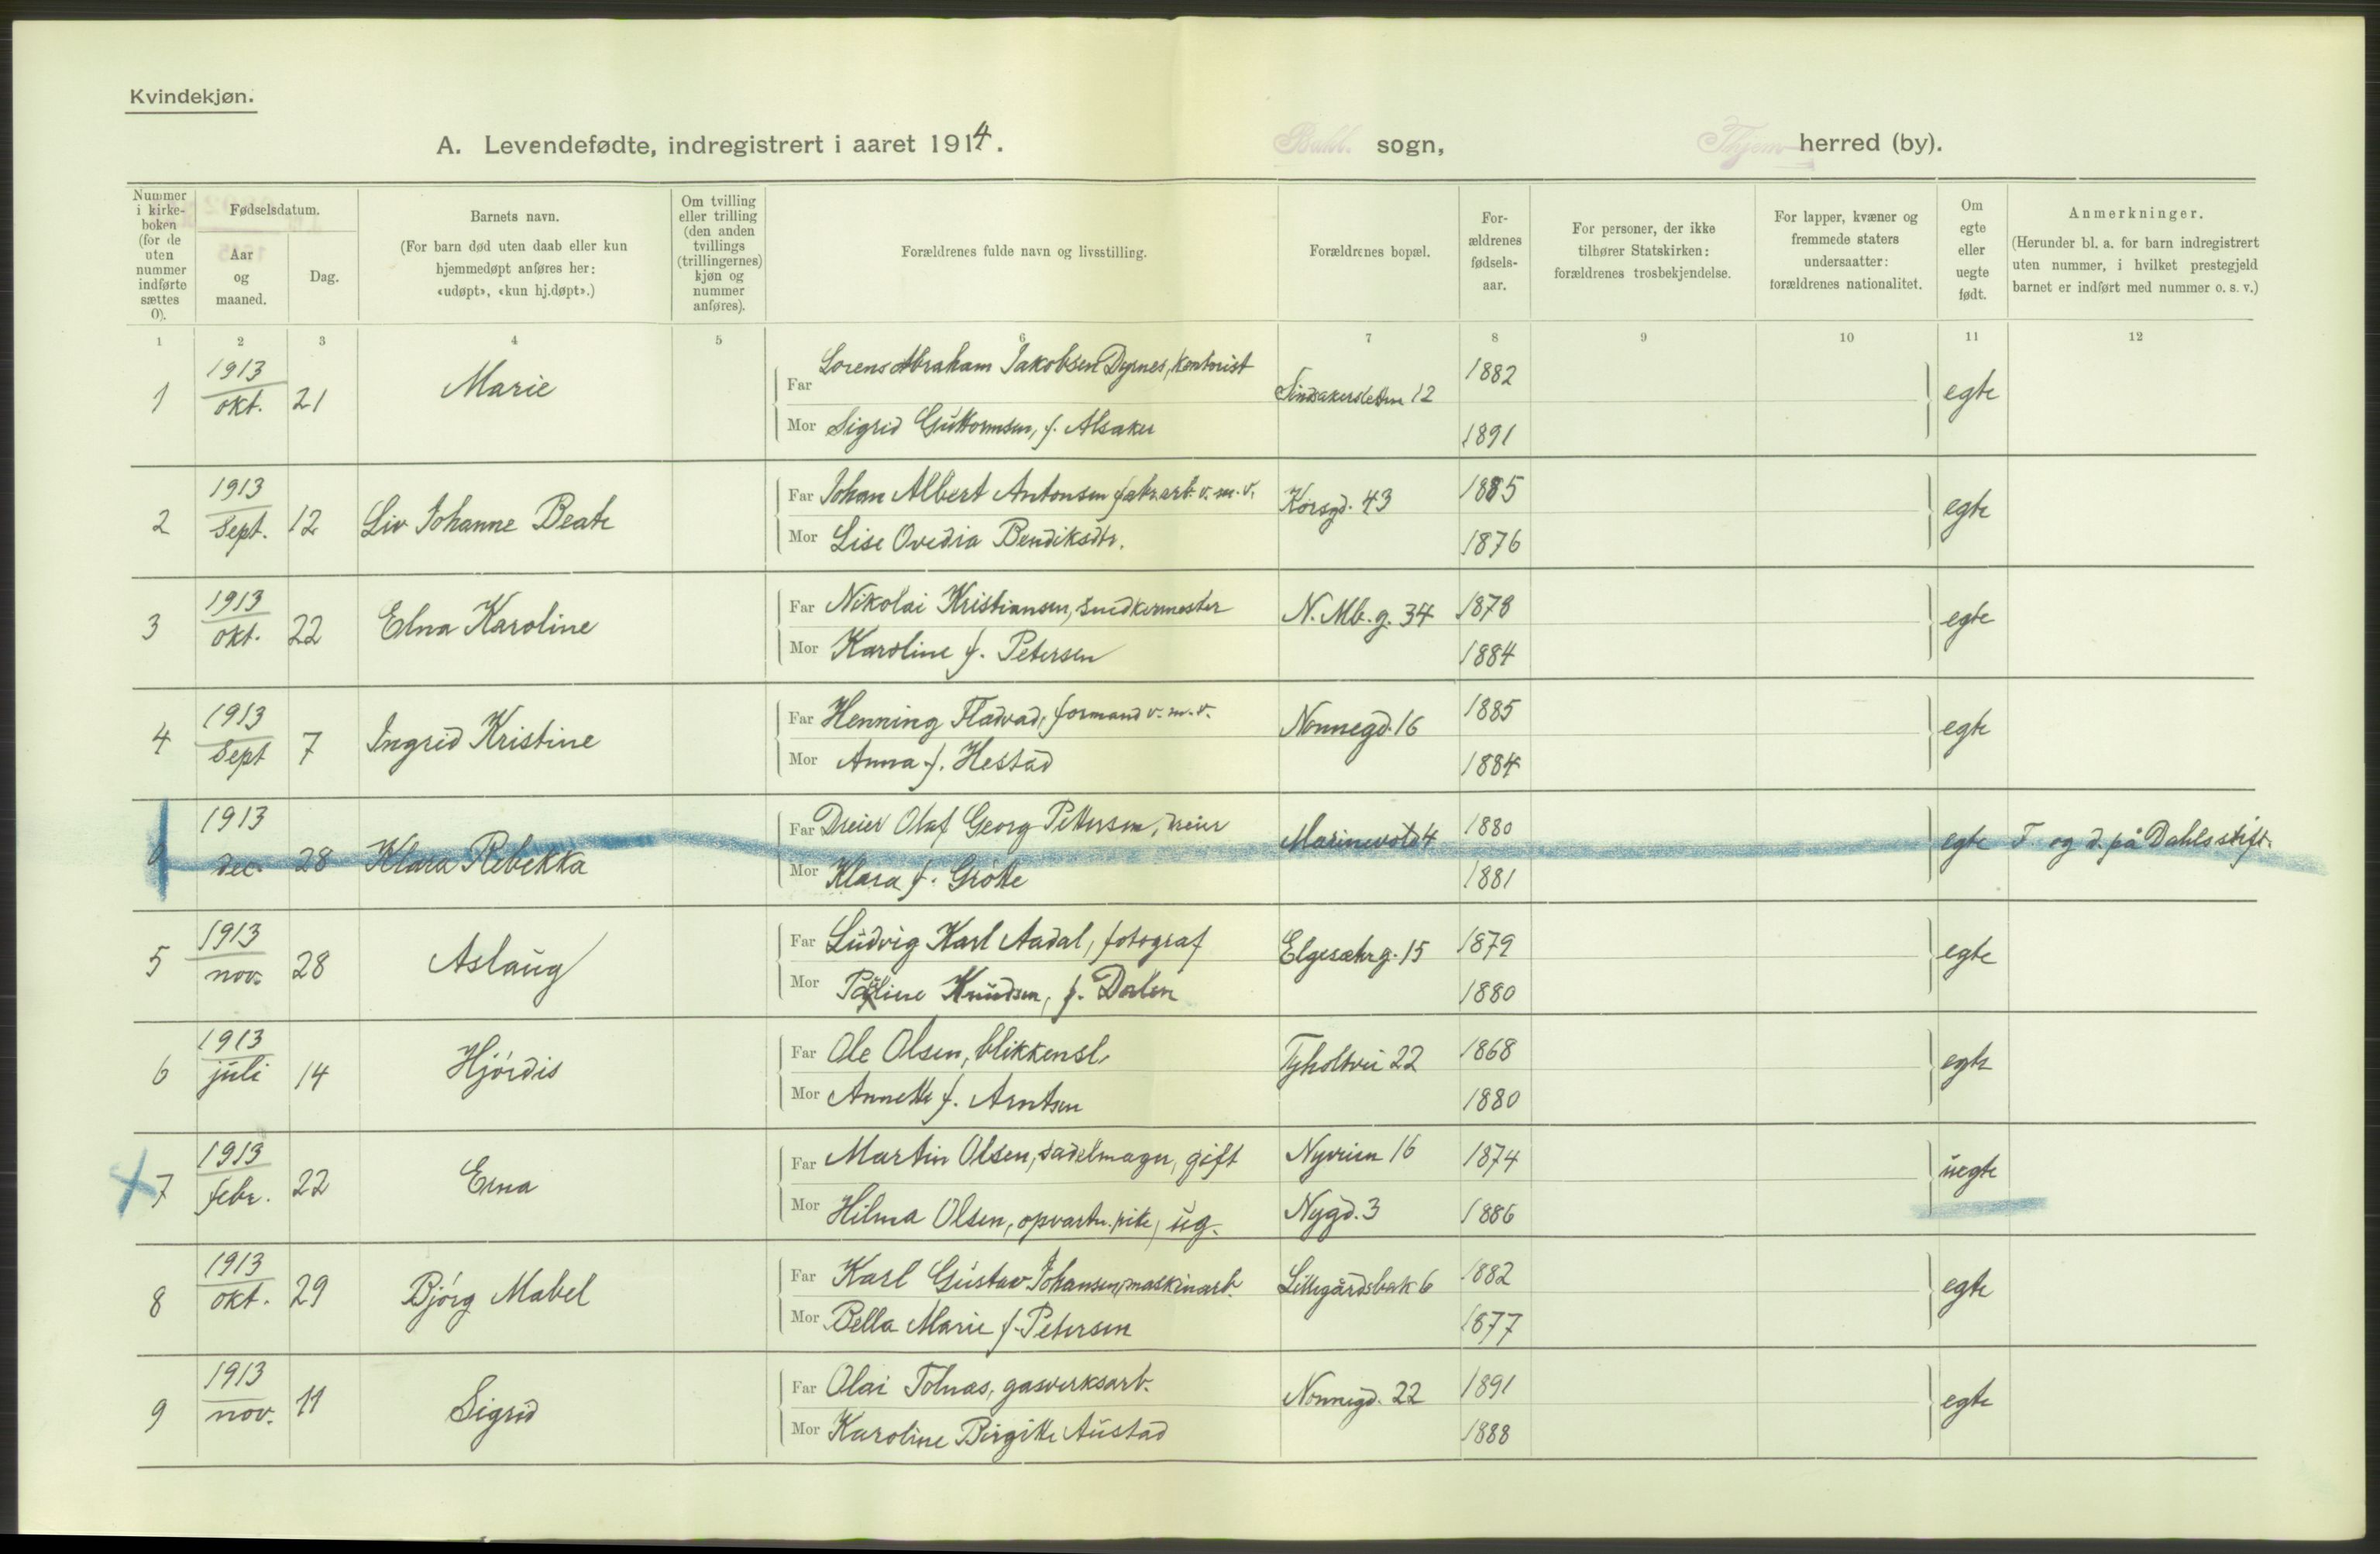 Kvindekjøn.
A. Levendefødte, indregistrert i aaret 1914. Bakl. sogn, Thjem herred (by).
Nummer i kirkeboken (for de uten nummer indførte sættes 0).
Fødselsdatum.
Aar og maaned.
Dag.
Barnets navn.
(For barn død uten daab eller kun hjemmedøpt anføres her: «udøpt», «kun hj.døpt».)
Om tvilling eller trilling (den anden tvillings (trillingernes) kjøn og nummer anføres).
Forældrenes fulde navn og livsstilling.
Forældrenes bopæl.
Forældrenes fødselsaar.
For personer, der ikke tilhører Statskirken: forældrenes trosbekjendelse.
For lapper, kvæner og fremmede staters undersaatter: forældrenes nationalitet.
Om egte eller uegte født.
Anmerkninger.
(Herunder bl. a. for barn indregistrert uten nummer, i hvilket prestegjeld barnet er indført med nummer o. s. v.)
1 2 3 4 5 6 7 8 9 10 11 12
1 1913 okt. 21 Marie Far Lorens Abraham Jakobsen Dyrnes, kontorist 12 1882 egte
Mor Sigrid Guttormsen, f. Alsaker 1891
2 1913 Sept. 12 Liv Johanne Beate Far Johan Albert Antonsen fabr.arb. v. m. v. Korsgd. 43 1885 egte
Mor Lise Ovedia Bendiksdtr. 1876
3 1913 okt. 22 Elna Karoline Far Nikolai Kristiansen, snedkermester N. Mb. g. 34 1878 egte
Mor Karoline f. Petersen 1884
4 1913 Sept 7 Ingrid Kristine Far Henning Fladvad, formand v. m. v. Nonnegd. 16 1885 egte
Mor Anna f. Hestad 1884
0 1913 dec. 28 Klara Rebekka Far Dreier Olaf Georg Pettersen, dreier Marinevold 4 1880 egte F. og d. på Dahls stift.
Mor Klara f. Grötte 1881
5 1913 nov. 28 Aslaug Far Ludvig Karl Aadal, fotograf Elgesætrg. 15 1879 egte
Mor Pauline Knudsen, f. Dalen 1880
6 1913 juli 14 Hjördis Far Ole Olsen, blikkensl. Tyholtvei 22 1868 egte
Mor Annette f. Arntsen 1880
7 1913 febr. 22 Erna Far Martin Olsen, sadelmager, gift Nyveien 16 1874 uegte
Mor Hilma Olsen, opvartn.pike, ug. Nygd. 3 1886
8 1913 okt. 29 Björg Mabel Far Karl Gustav Johansen, maskinarb. Lillegårdsbak 6 1882 egte
Mor Bella Marie f. Petersen 1877
9 1913 nov. 11 Sigrid Far Olai Tolnas, gasverksarb. Nonnegd. 22 1891 egte
Mor Karoline Birgitte Austad 1888